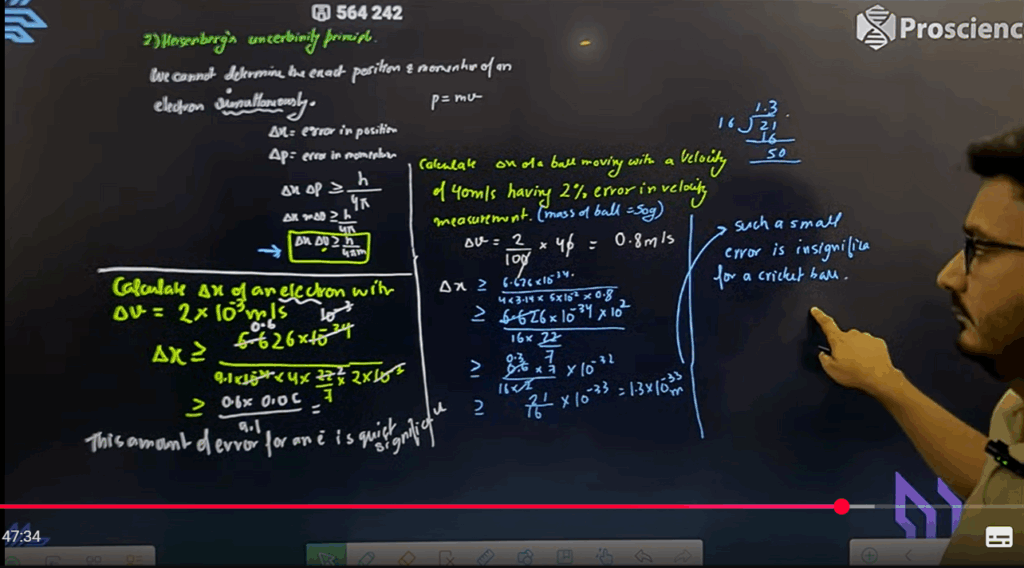 564 242
Proscienc
2) Heisenberg's uncertainity principl.
We cannot determine the exact position & momentum of an
electron simultaneously.
p = mv
Δx = error in position
Δp = error in momentum
Δx Δp ≥ h/4π
Δx mΔv ≥ h/4π
Δx Δv ≥ h/4πm
Calculate Δx of an electron with
Δv = 2×10⁻³ m/s
Δx ≥
This amount of error for an ē is quiet
Calculate Δx of a ball moving with a velocity
of 40m/s having 2% error in velocity
measurement. (mass of ball = 50g)
Δv = 2/100 × 40 = 0.8m/s
Δx ≥ 6.626×10⁻³⁴ / 4×3.14×5×10⁻²×0.8
≥ 6.626×10⁻³⁴×10² / 16×22/7
≥ × 10⁻³²
≥ 21/16 ×10⁻³³ = 1.3×10⁻³³ m
1.3
16 21
16
50
such a small
error is
for a cricket ball.
47:34